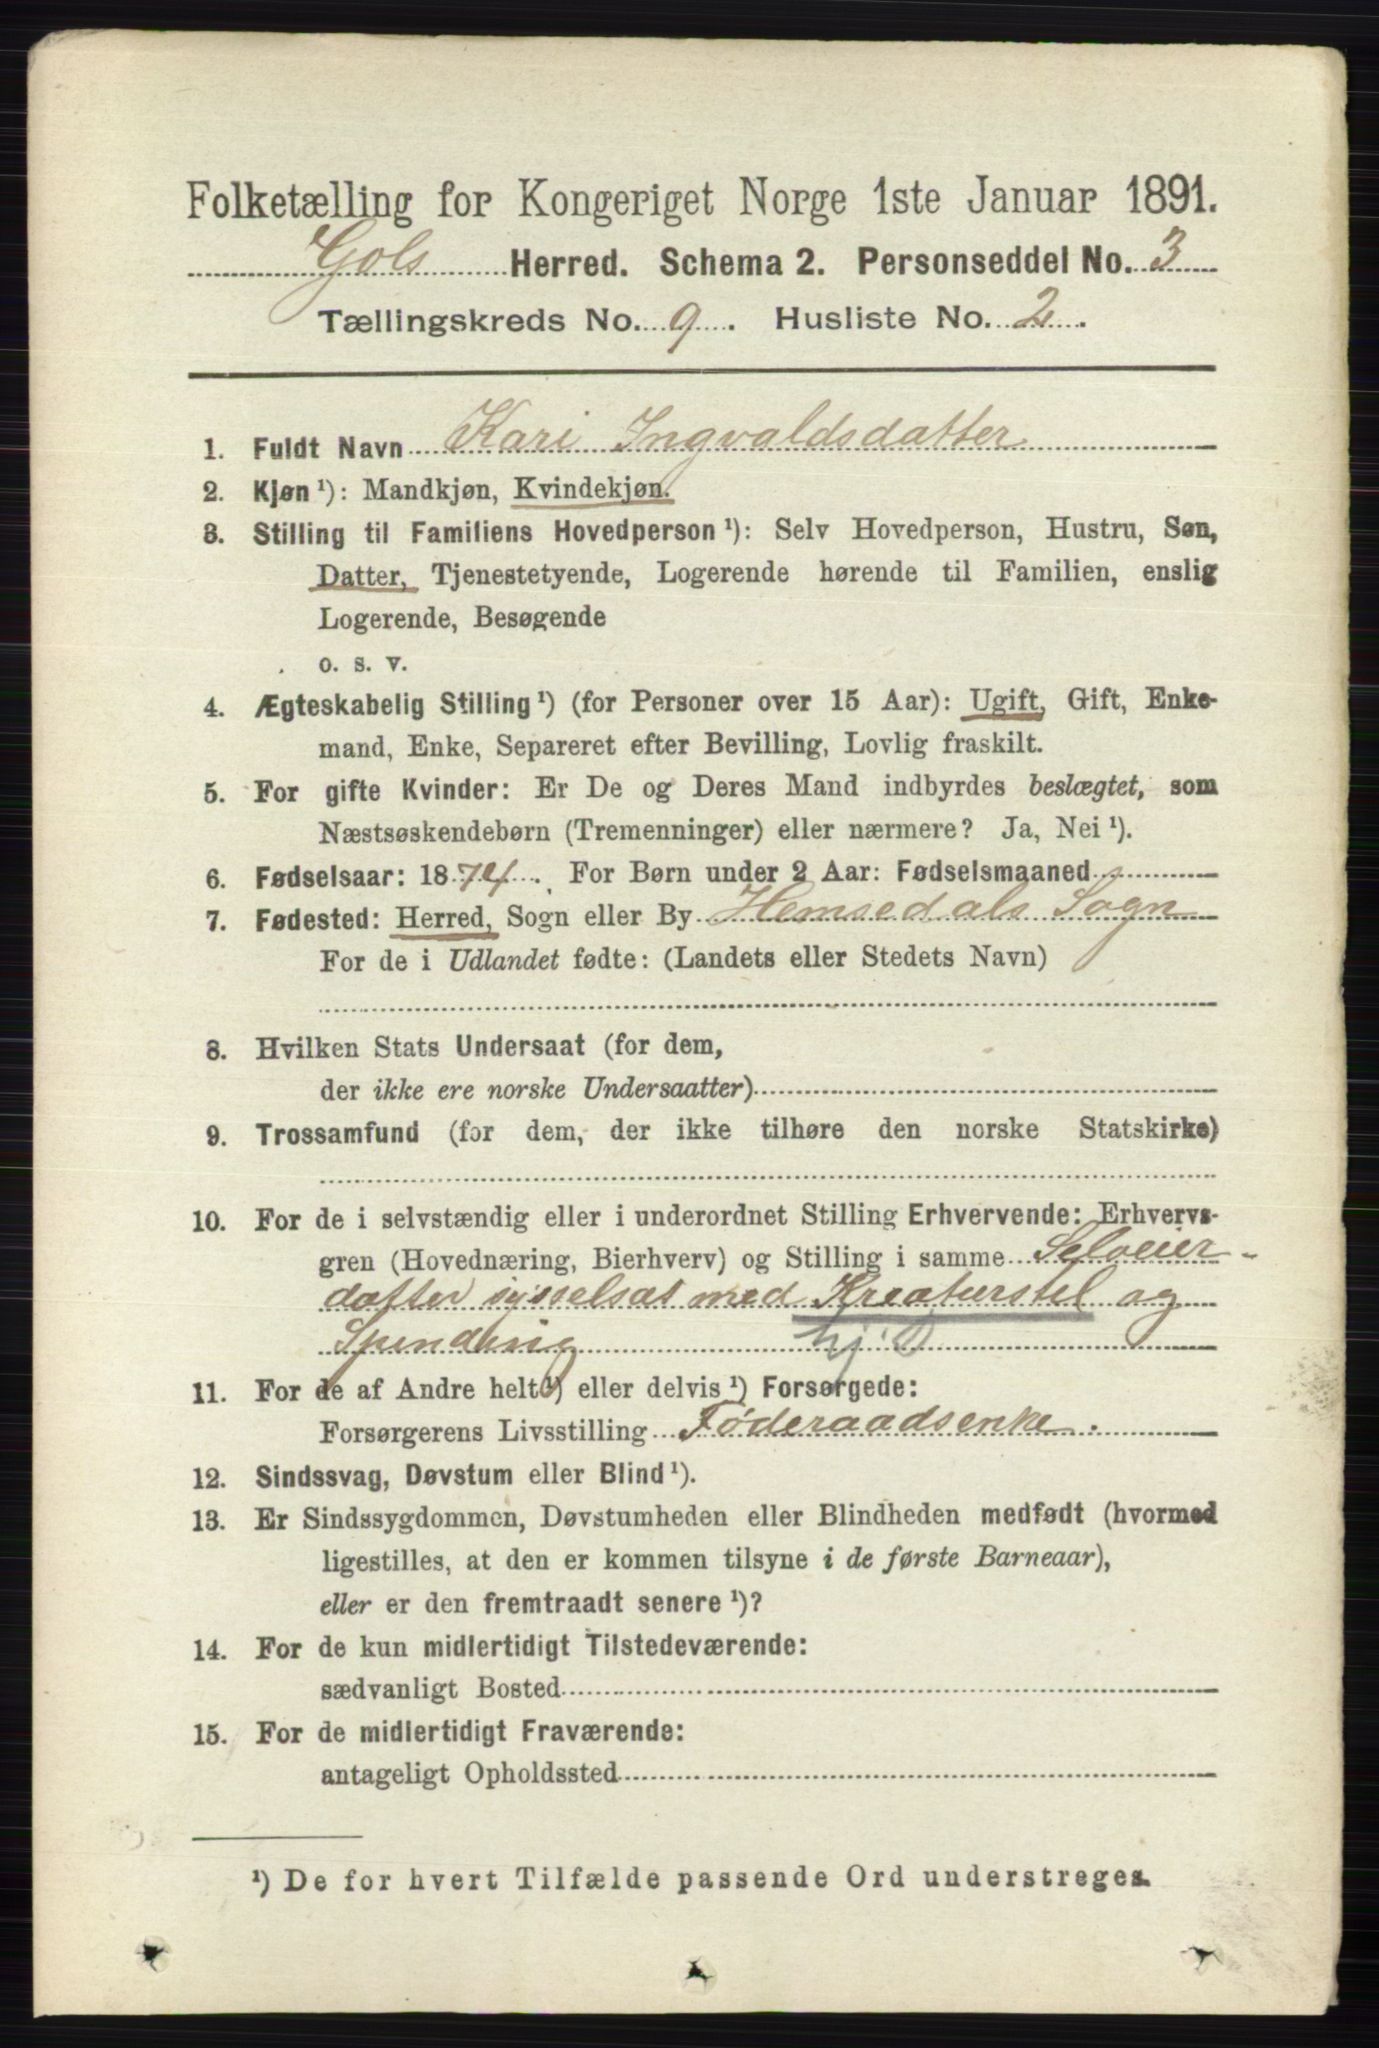 Folketælling for Kongeriget Norge 1ste Januar 1891.
Gols Herred. Schema 2. Personseddel No. 3
Tællingskreds No. 9. Husliste No. 2.
1. Fuldt Navn Kari Ingvaldsdatter
2. Kjøn ¹): Mandkjøn, Kvindekjøn.
3. Stilling til Familiens Hovedperson ¹): Selv Hovedperson, Hustru, Søn,
Datter, Tjenestetyende, Logerende hørende til Familien, enslig
Logerende, Besøgende
o. s. v.
4. Ægteskabelig Stilling ¹) (for Personer over 15 Aar): Ugift, Gift, Enke-
mand, Enke, Separeret efter Bevilling, Lovlig fraskilt.
5. For gifte Kvinder: Er De og Deres Mand indbyrdes beslægtet, som
Næstsøskendebørn (Tremenninger) eller nærmere? Ja, Nei ¹).
6. Fødselsaar: 1874. For Børn under 2 Aar: Fødselsmaaned
7. Fødested: Herred, Sogn eller By Hemsedals Sogn
For de i Udlandet fødte: (Landets eller Stedets Navn)
8. Hvilken Stats Undersaat (for dem,
der ikke ere norske Undersaatter)
9. Trossamfund (for dem, der ikke tilhøre den norske Statskirke)
10. For de i selvstændig eller i underordnet Stilling Erhvervende: Erhvervs-
gren (Hovednæring, Bierhverv) og Stilling i samme Selveier-
datter sysselsat med Kreaturstel og
Spinding hj: D
11. For de af Andre helt ¹) eller delvis ¹) Forsørgede:
Forsørgerens Livsstilling Føderaadsenke.
12. Sindssvag, Døvstum eller Blind ¹).
13. Er Sindssygdommen, Døvstumheden eller Blindheden medfødt (hvormed
ligestilles, at den er kommen tilsyne i de første Barneaar),
eller er den fremtraadt senere ¹)?
14. For de kun midlertidigt Tilstedeværende:
sædvanligt Bosted
15. For de midlertidigt Fraværende:
antageligt Opholdssted
¹) De for hvert Tilfælde passende Ord understreges.